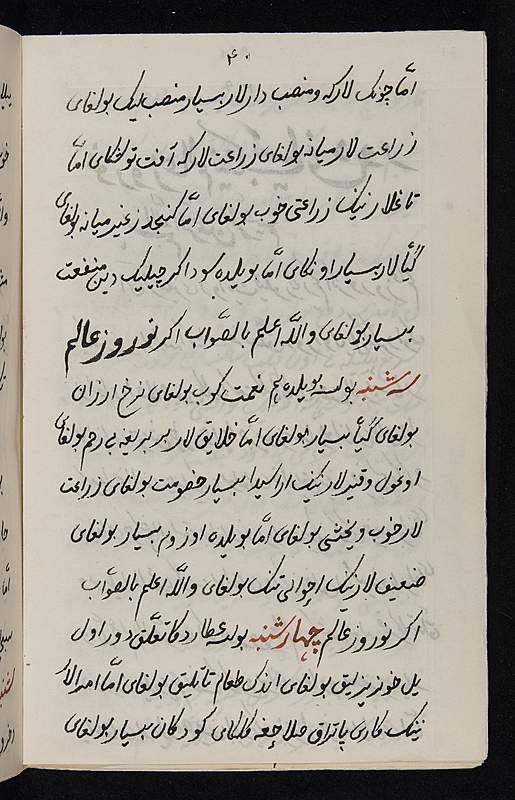 ۴۰
امّا چونک لارکه و منصب دارلار بسیار منصب لیک بولغای
زراعت لار میانه بولغای زراعت لارکه آفت تولخکای امّا
تاغلارنیک زراعتی خوب بولغای امّا کنجد زغیر میانه بولغای
گیاٌلار بسیار اونکای امّا بو یلده سودا کر چیلیک دین منفعت
بسیار بولغای واللّه اعلم بالصّواب اکر نوروز عالم
سه شنبه بولسه بو یلده هم نعمت کوب بولغای نرخ ارزان
بولغای گیاٌ بسیار بولغای امّا خلایق لار بر بریغه بی رحم بولغای
اوغول و قیزلارنیک اراسیدا بسیار خصومت بولغای زراعت
لار خوب و یخشی بولغای امّا بو یلده اوزوم بسیار بولغای
ضعیف لارنیک احوالی تنک بولغای واللّه اعلم بالصّواب
اکر نوروز عالم چهارشنبه بولسه عطاردکا تعلّق دور اول
یل خونریزلیق بولغای اندک طعام تانلیق بولغای امّا امرالار
نینک کاری یاتراق صلاحغه کلکای کودکان بسیار بولغای